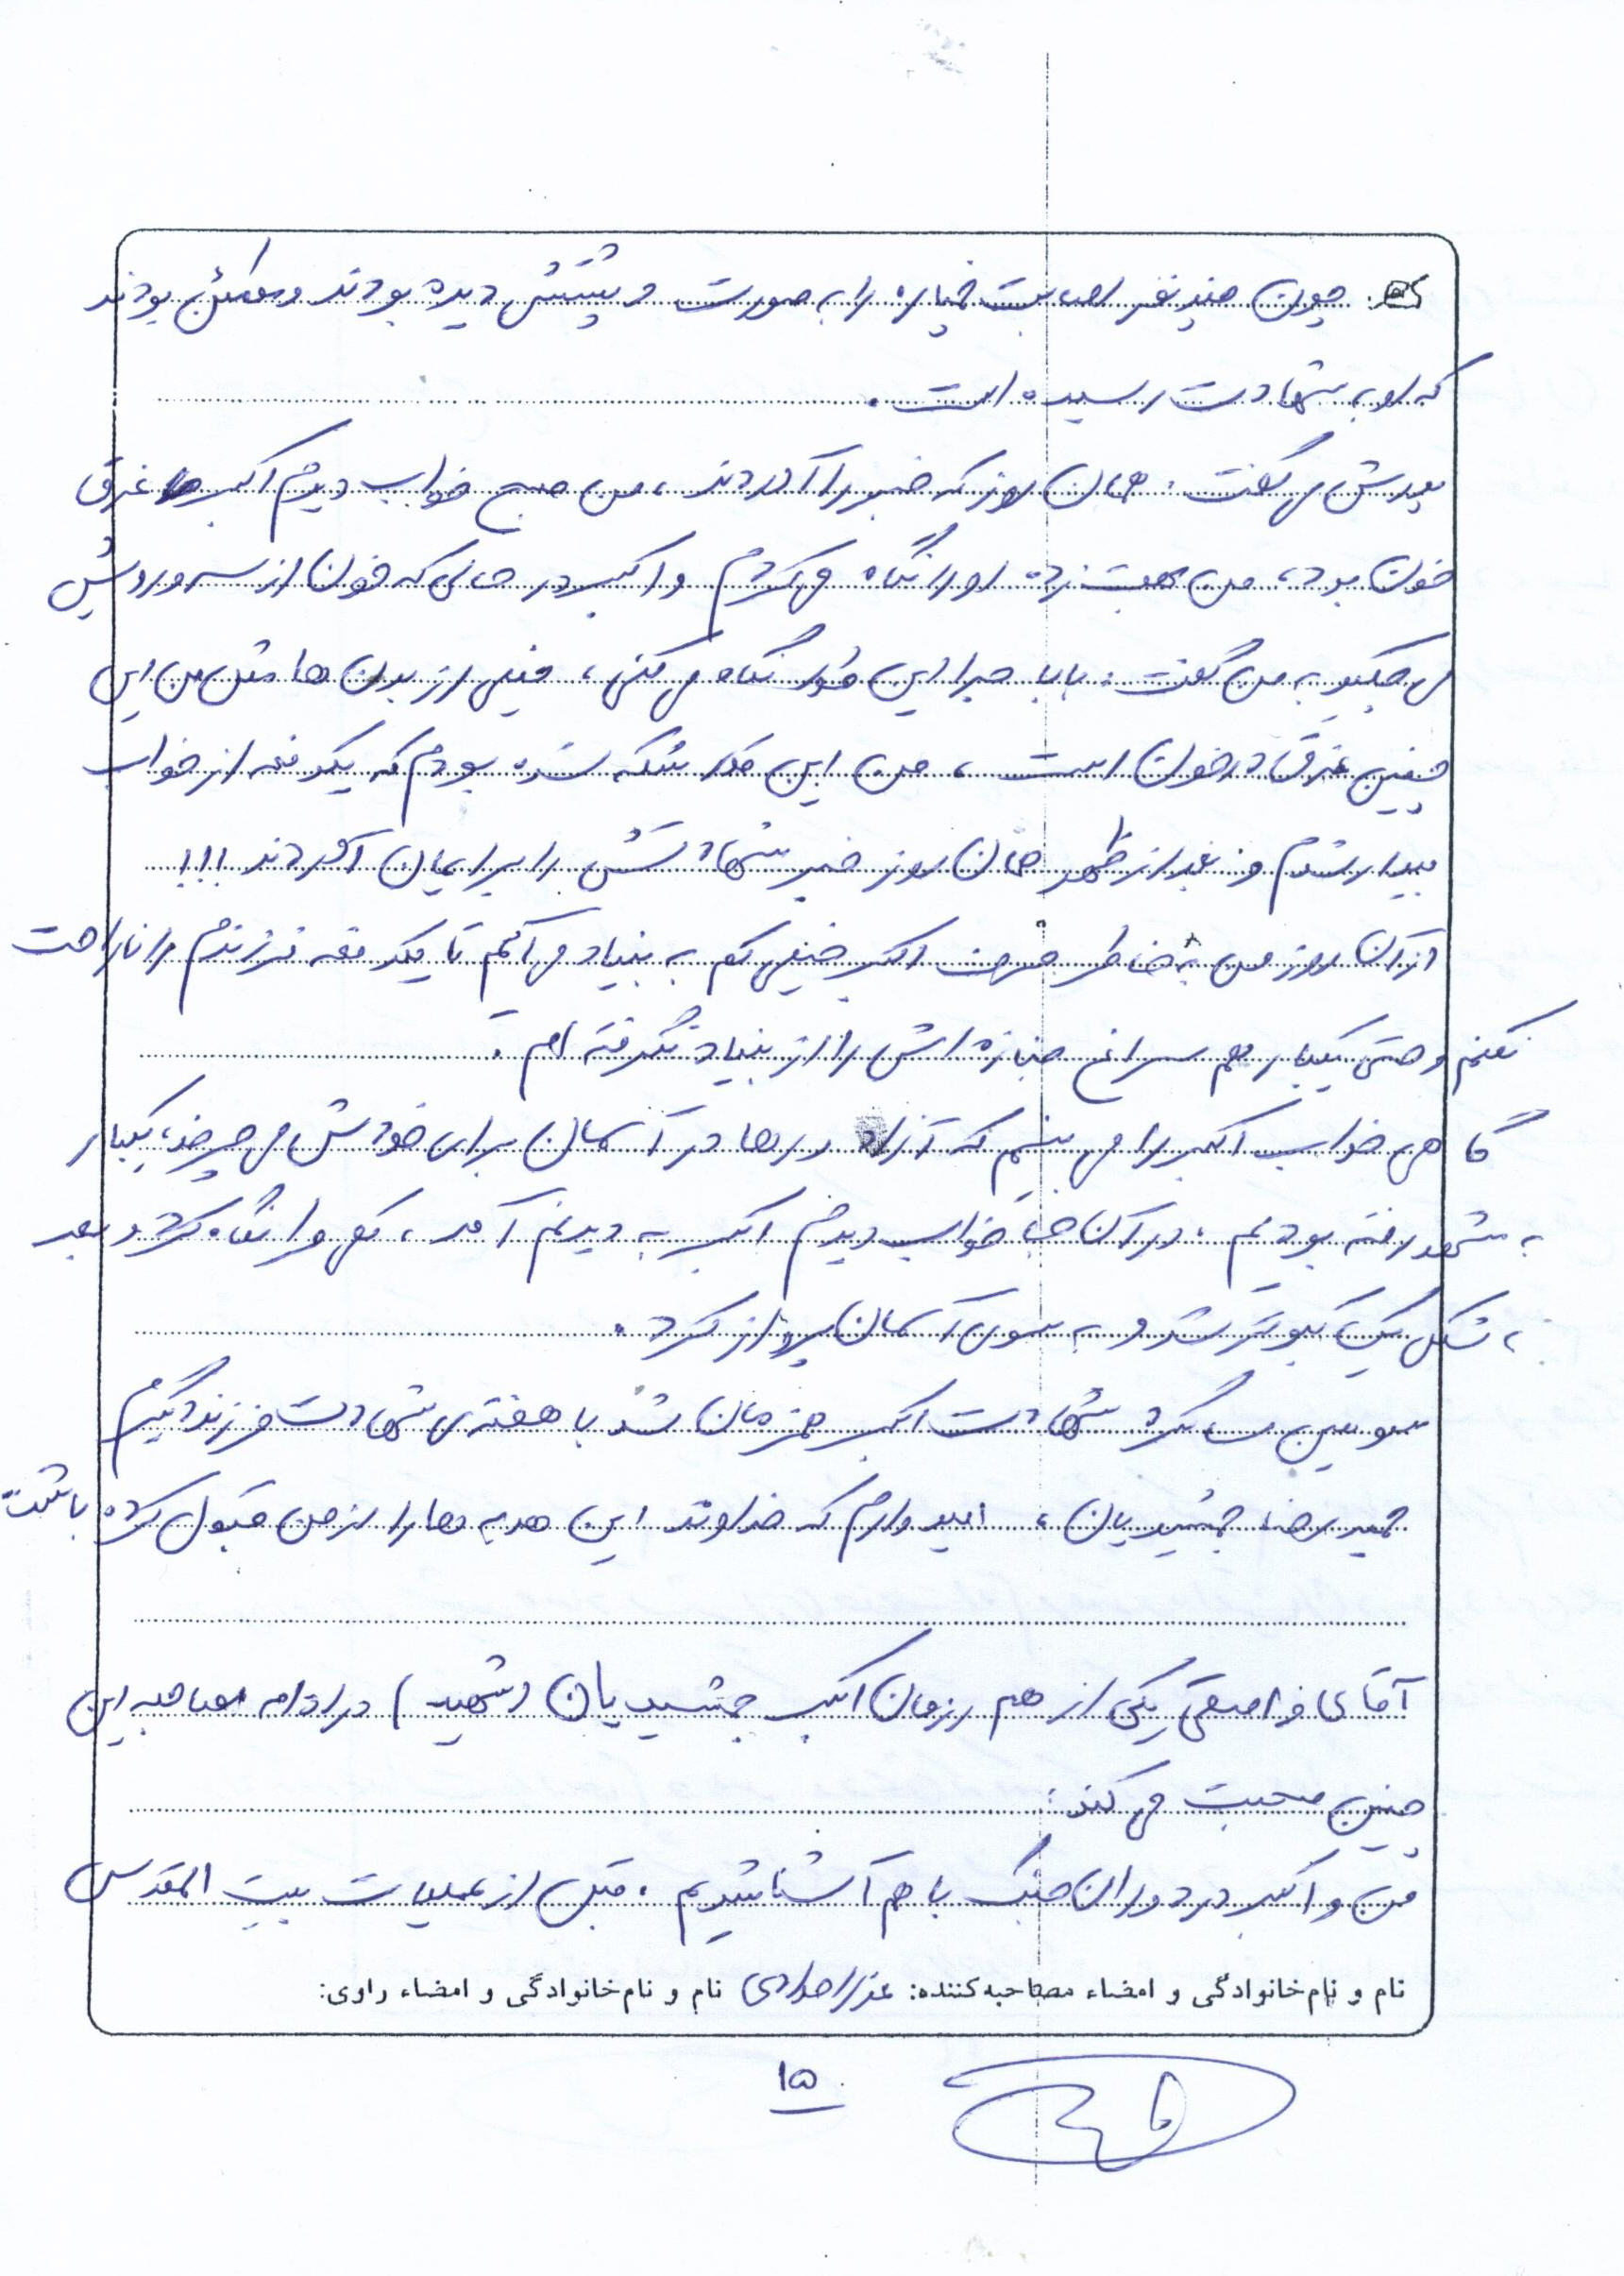 چون چند نفر اصابت خمپاره را به صورت و پشتش دیده بودند و مطمئن بودند
که او به شهادت رسیده است.
پدرش می گفت: همان روز که خبر را آوردند، من صبح خواب دیدم اکبر غرق
خون بود، من بهت زده او را نگاه می کردم و اکبر در حالی که خون از سر و رویش
می چکید به من گفت: بابا چرا این طور نگاه می کنی، خیلی از بدن ها مثل من این
چنین غرق در خون است، من این قدر شکه شده بودم که یکدفعه از خواب
بیدار شدم و بعد از ظهر همان روز خبر شهادتش را برایمان آوردند!!!
از آن روز من به خاطر حرف اکبر خیلی کم به بنیاد می آیم تا یکدفعه فرزندم را ناراحت
نکنم و حتی یکبار هم سراغ جنازه اش را از بنیاد نگرفته ام.
گاهی خواب اکبر را می بینم که آزاد و رها در آسمان برای خودش می چرخد، یکبار
به مشهد رفته بودیم، در آن جا خواب دیدم اکبر به دیدنم آمد، کمی مرا نگاه کرد و بعد
به شکل یک کبوتر شد و به سوی آسمان پرواز کرد.
سومین سالگرد شهادت اکبر همزمان شد با هفته ی شهادت فرزند دیگرم
حمیدرضا جمشیدیان، امیدوارم که خداوند این هدیه ها را از من قبول کرده باشد.
آقای یکی از هم رزمان اکبر جمشیدیان (شهید) در ادامه مصاحبه این
چنین صحبت می کند:
من و اکبر در دوران جنگ با هم آشنا شدیم. قبل از عملیات بیت المقدس
نام و نام خانوادگی و امضاء مصاحبه کننده: نام و نام خانوادگی و امضاء راوی:
۱۵